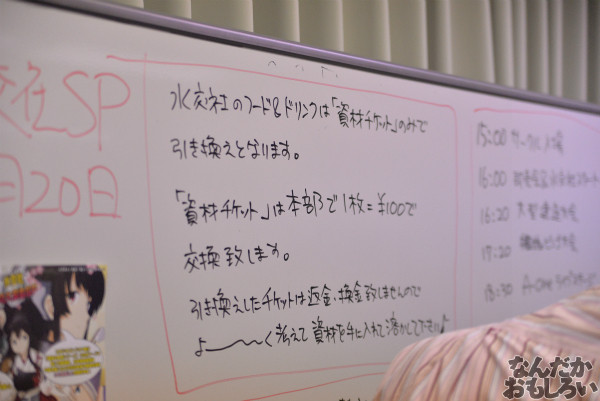 交社SP
月20日
水交社のフード&ドリンクは「資材チケット」のみで
引き換えとなります。
「資材チケット」は本部で1枚=¥100で
交換致します。
引き換えしたチケットは返金、換金致しませんので
よーーーく考えて資材を手に入れて溶かして下さい♪
15:00
16:00
16:20
17:20
18:30
なんだか
おもしろい